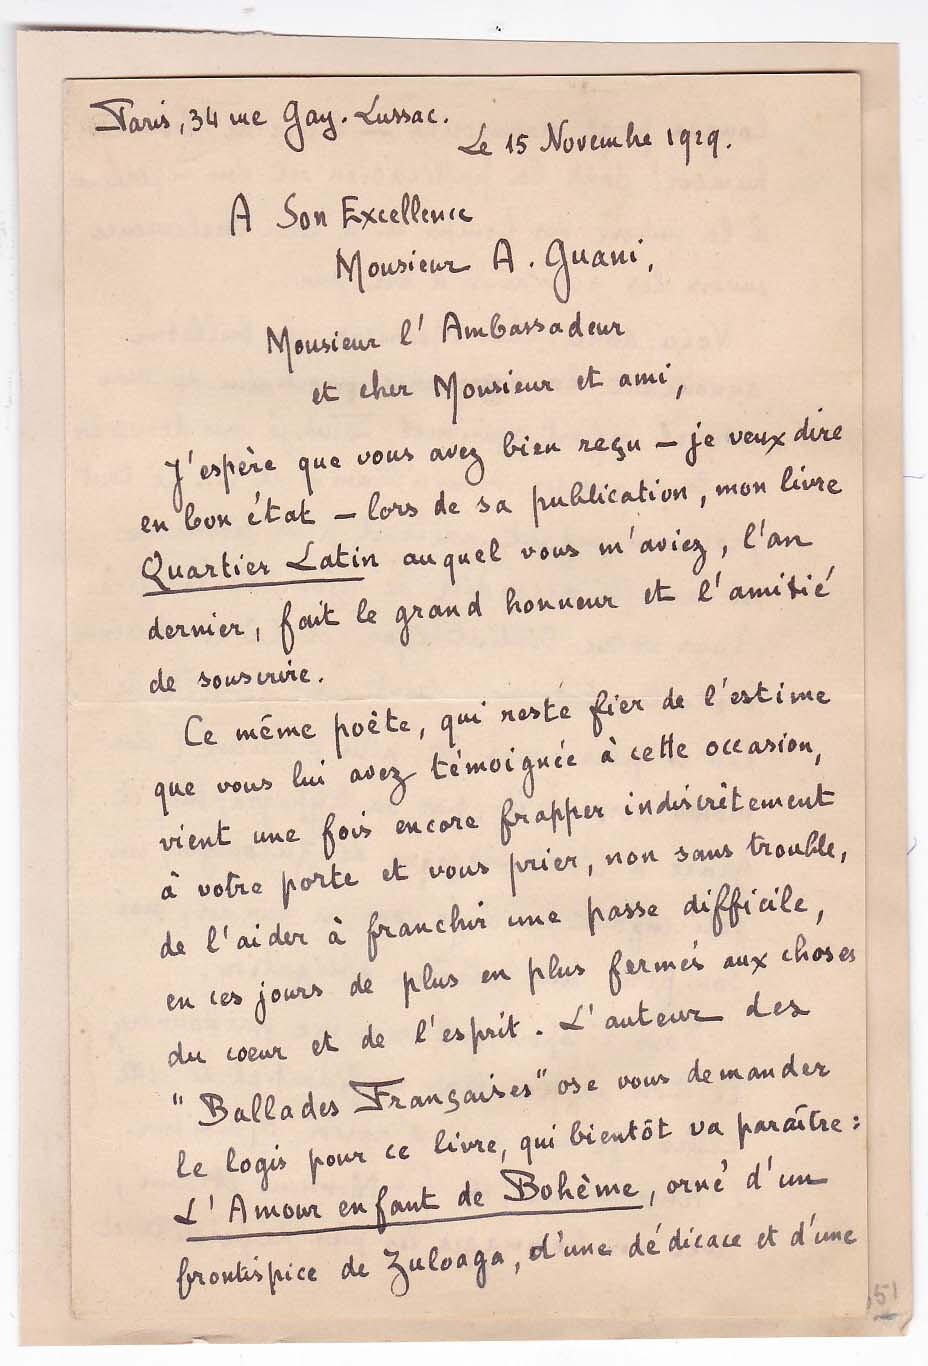 Paris, 34 rue Gay-Lussac.
Le 15 Novembre 1929.
A Son Excellence
Monsieur A. Guani,
Monsieur l'Ambassadeur
et cher Monsieur et ami,
J'espère que vous avez bien reçu – je veux dire
en bon état – lors de sa publication, mon livre
Quartier Latin auquel vous m'aviez, l'an
dernier, fait le grand honneur et l'amitié
de souscrire.
Ce même poète, qui reste fier de l'estime
que vous lui avez témoignée à cette occasion,
vient une fois encore frapper indiscrètement
à votre porte et vous prier, non sans trouble,
de l'aider à franchir une passe difficile,
en ces jours de plus en plus fermés aux choses
du coeur et de l'esprit. L'auteur des
"Ballades Françaises" ose vous demander
le logis pour ce livre, qui bientôt va paraître :
L'Amour enfant de Bohème, orné d'un
frontispice de Zuloaga, d'une dédicace et d'une
51